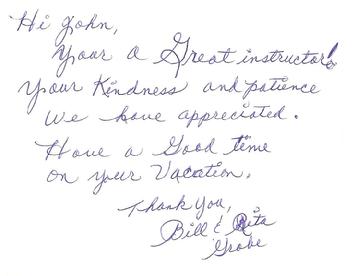 Hi John,
Your a Great instructor!
Your Kindness and patience
we have appreciated.
Have a Good time
on your Vacation.
Thank You,
Bill & Rita
Grobe